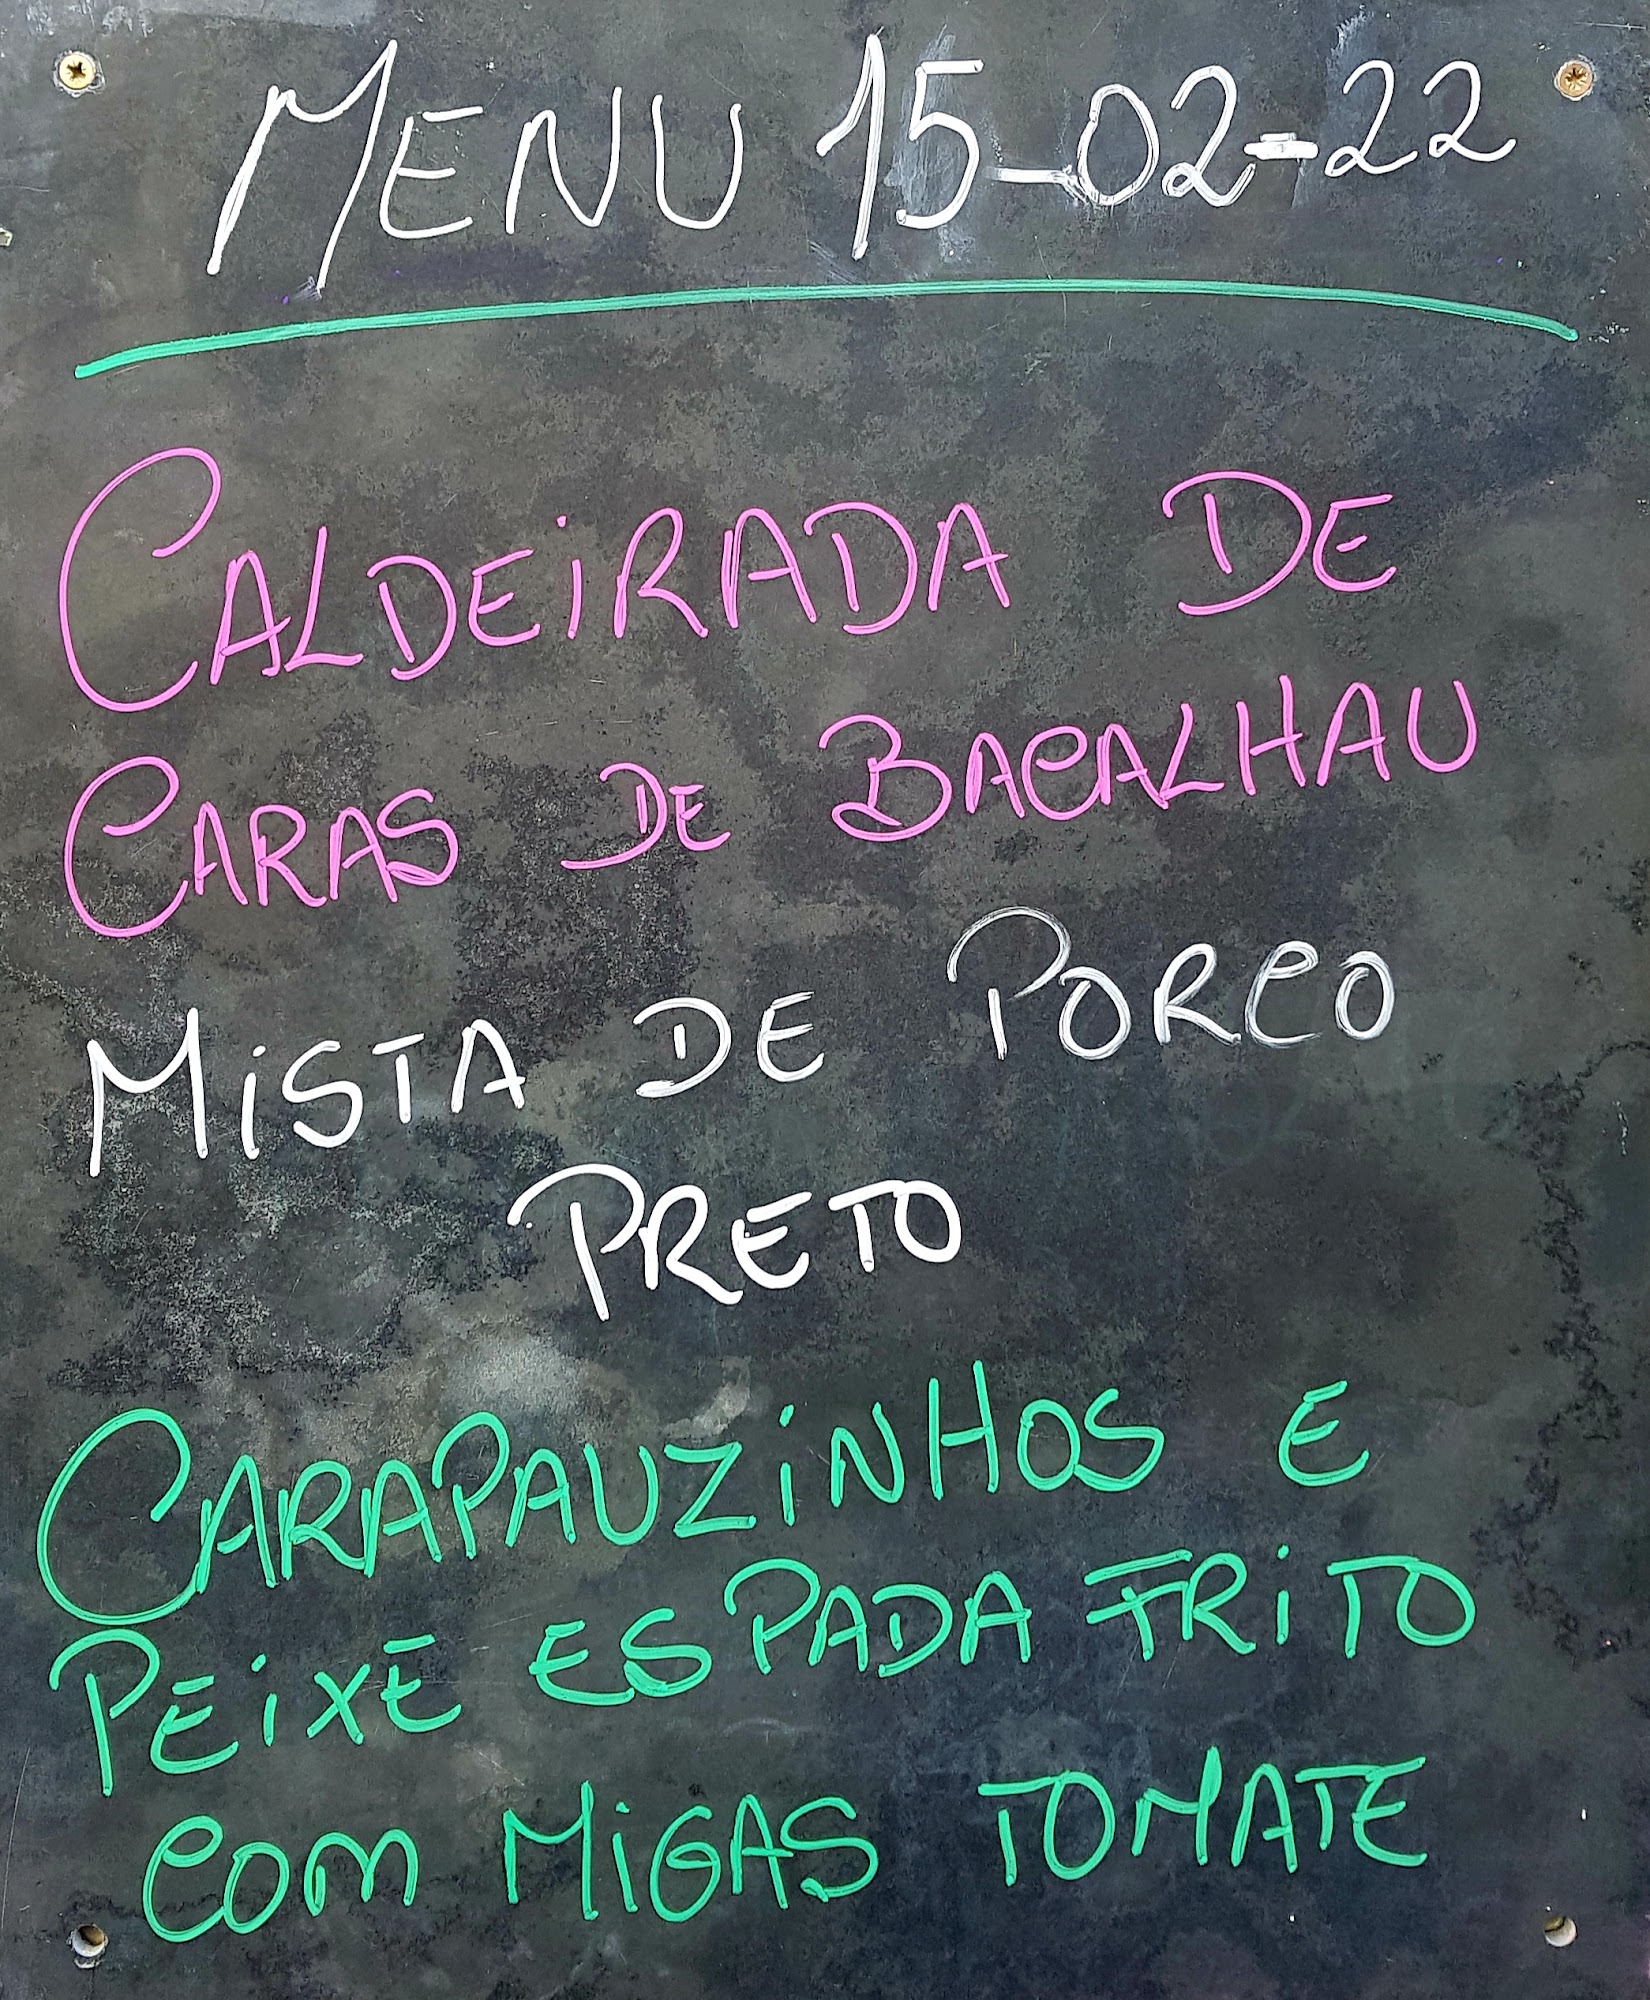 MENU 15-02-22
CALDEIRADA DE
CARAS DE BACALHAU
MISTA DE PORCO
PRETO
CARAPAUZINHOS E
PEIXE ESPADA FRITO
COM MIGAS TOMATE